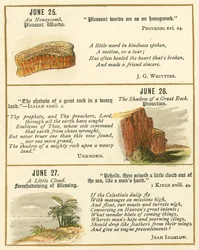 JUNE 25.
An Honeycomb.
Pleasant Words.
"Pleasant words are as an honeycomb."
PROVERBS xvi. 24.
A little word in kindness spoken,
A motion, or a tear;
Has often healed the heart that's broken,
And made a friend sincere.
J. G. WHITTIER.
"The shadow of a great rock in a weary
land."—ISAIAH xxxii. 2.
JUNE 26.
The Shadow of a Great Rock.
Protection.
Thy prophets, and Thy preachers, Lord,
through all the earth have sought
Emblems of Thee, whose sole command
that earth from chaos wrought,
But never truer one than this was
found, nor one more grand,
The shadow of a mighty rock upon a weary
land.
UNKNOWN.
JUNE 27.
A Little Cloud.
Foreshadowing of Blessing.
"Behold, there ariseth a little cloud out of the
sea, like a man's hand."
1 KINGS xviii. 44.
If the Celestials daily fly
With messages on missions high,
And float, our masts and turrets nigh,
Conversing on Heaven's great intents;
What wonder hints of coming things,
Whereto men's hope and yearning clings,
Should drop like feathers from their wings
And give us vague presentiments?
JEAN INGELOW.